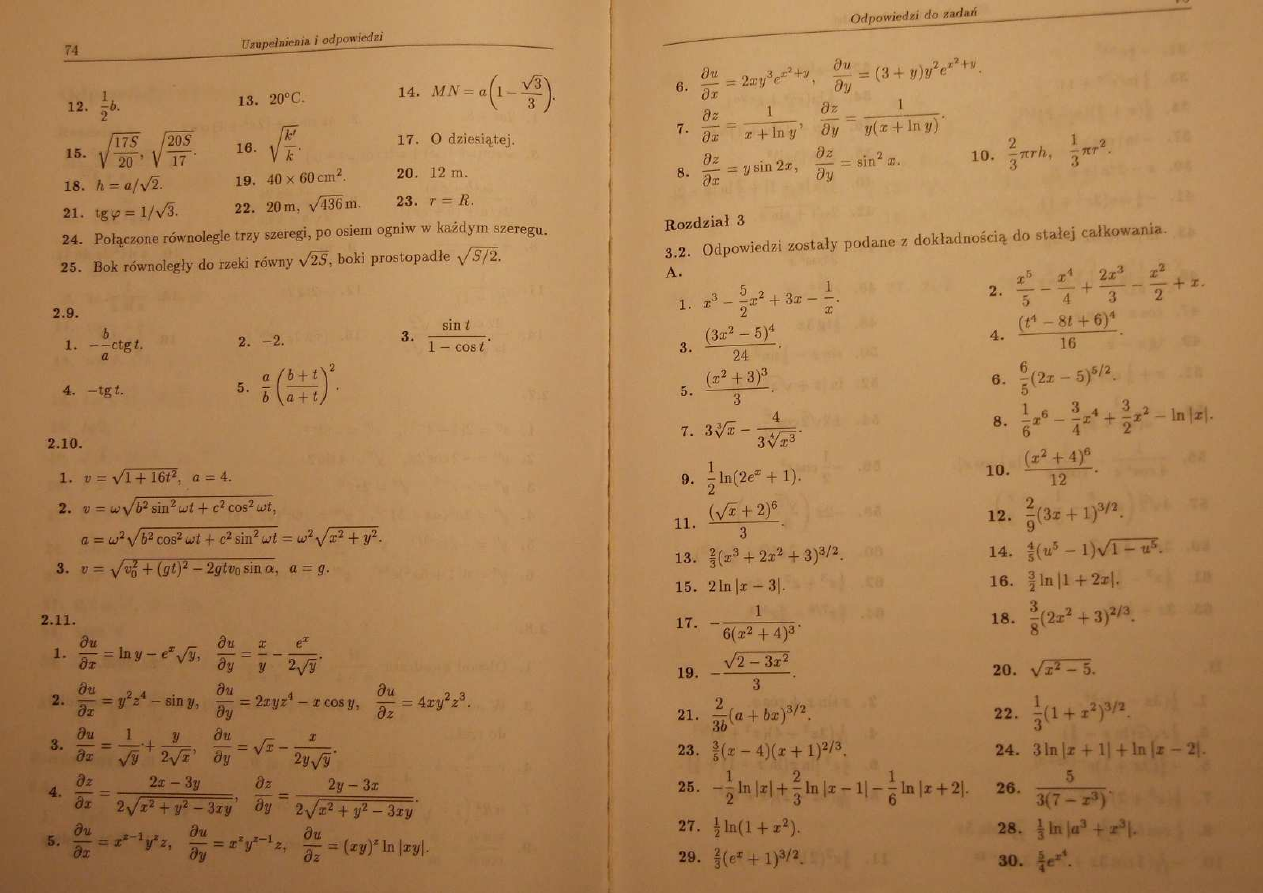 74 Uzupełnienia i odpowiedzi
12. 1/2 b. 13. 20°C. 14. MN = a(1 - √3/3).
15. √(17S/20), √(20S/17). 16. √(k'/k). 17. O dziesiątej.
18. h = a/√2. 19. 40 × 60 cm². 20. 12 m.
21. tg φ = 1/√3. 22. 20 m, √436 m. 23. r = R.
24. Połączone równolegle trzy szeregi, po osiem ogniw w każdym szeregu.
25. Bok równoległy do rzeki równy √(2S), boki prostopadłe √(S/2).
2.9.
1. -b/a ctg t. 2. -2. 3. sin t/(1 - cos t).
4. -tg t. 5. a/b ((b + t)/(a + t))².
2.10.
1. v = √(1 + 16t²), a = 4.
2. v = ω√(b² sin² ωt + c² cos² ωt),
a = ω²√(b² cos² ωt + c² sin² ωt) = ω²√(x² + y²).
3. v = √(v₀² + (gt)² - 2gtv₀ sin α), a = g.
2.11.
1. ∂u/∂x = ln y - eˣ√y, ∂u/∂y = x/y - eˣ/(2√y).
2. ∂u/∂x = y²z⁴ - sin y, ∂u/∂y = 2xyz⁴ - x cos y, ∂u/∂z = 4xy²z³.
3. ∂u/∂x = 1/√y + y/(2√x), ∂u/∂y = √x - x/(2y√y).
4. ∂z/∂x = (2x - 3y)/(2√(x² + y² - 3xy)), ∂z/∂y = (2y - 3x)/(2√(x² + y² - 3xy)).
5. ∂u/∂x = x^(z-1) y^z z, ∂u/∂y = x^z y^(z-1) z, ∂u/∂z = (xy)^z ln |xy|.
Odpowiedzi do zadań
6. ∂u/∂x = 2xy³e^(x²+y), ∂u/∂y = (3 + y)y²e^(x²+y).
7. ∂z/∂x = 1/(x + ln y), ∂z/∂y = 1/(y(x + ln y)).
8. ∂z/∂x = y sin 2x, ∂z/∂y = sin² x. 10. 2/3 πrh, 1/3 πr².
Rozdział 3
3.2. Odpowiedzi zostały podane z dokładnością do stałej całkowania.
A.
1. x³ - 5/2 x² + 3x - 1/x. 2. x⁵/5 - x⁴/4 + 2x³/3 - x²/2 + x.
3. (3x² - 5)⁴/24. 4. (t⁴ - 8t + 6)⁴/16.
5. (x² + 3)³/3. 6. 6/5 (2x - 5)^(5/2).
7. 3∛x - 4/(3∜x³). 8. 1/6 x⁶ - 3/4 x⁴ + 3/2 x² - ln |x|.
9. 1/2 ln(2eˣ + 1). 10. (x² + 4)⁶/12.
11. (√x + 2)⁶/3. 12. 2/9 (3x + 1)^(3/2).
13. 2/3 (x³ + 2x² + 3)^(3/2). 14. 4/5 (u⁵ - 1)√(1 - u⁵).
15. 2 ln |x - 3|. 16. 3/2 ln |1 + 2x|.
17. -1/(6(x² + 4)³). 18. 3/8 (2x² + 3)^(2/3).
19. -√(2 - 3x²)/3. 20. √(x² - 5).
21. 2/(3b) (a + bx)^(3/2). 22. 1/3 (1 + x²)^(3/2).
23. 3/5 (x - 4)(x + 1)^(2/3). 24. 3 ln |x + 1| + ln |x - 2|.
25. -1/2 ln |x| + 2/3 ln |x - 1| - 1/6 ln |x + 2|. 26. 5/(3(7 - x³)).
27. 1/2 ln(1 + x²). 28. 1/3 ln |a³ + x³|.
29. 2/3 (eˣ + 1)^(3/2). 30. 5/4 e^(x⁴).